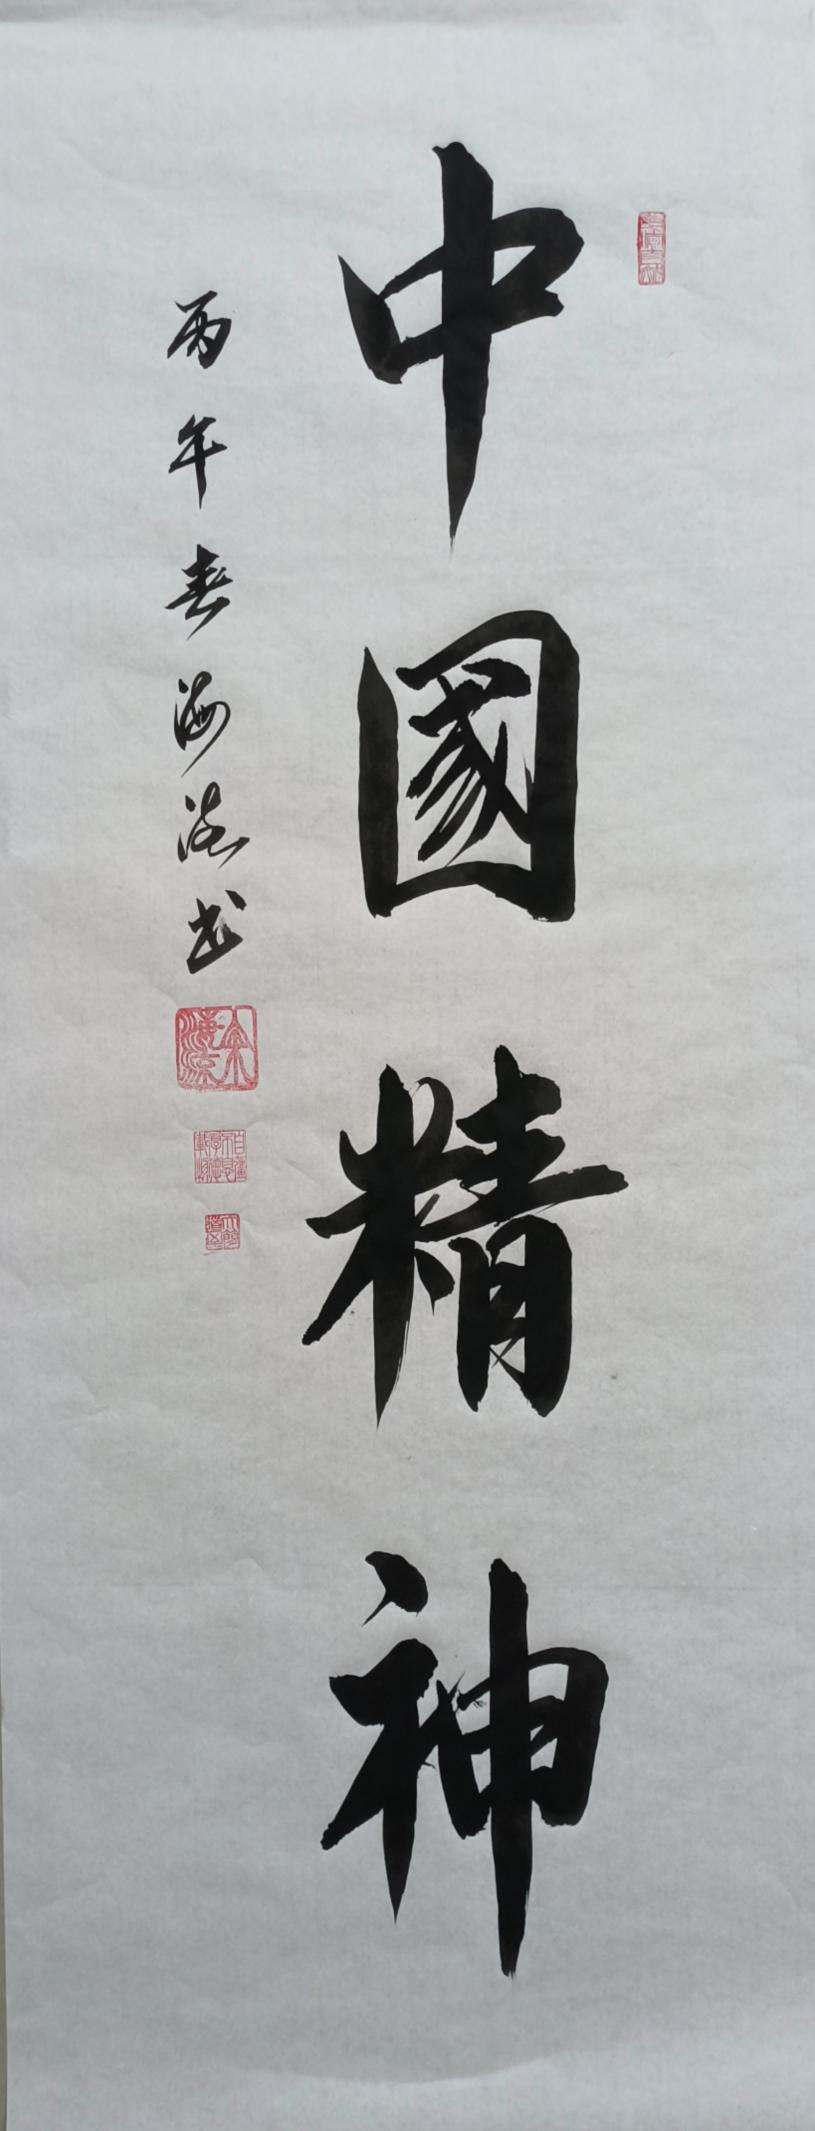 中國精神
丙午春海源书